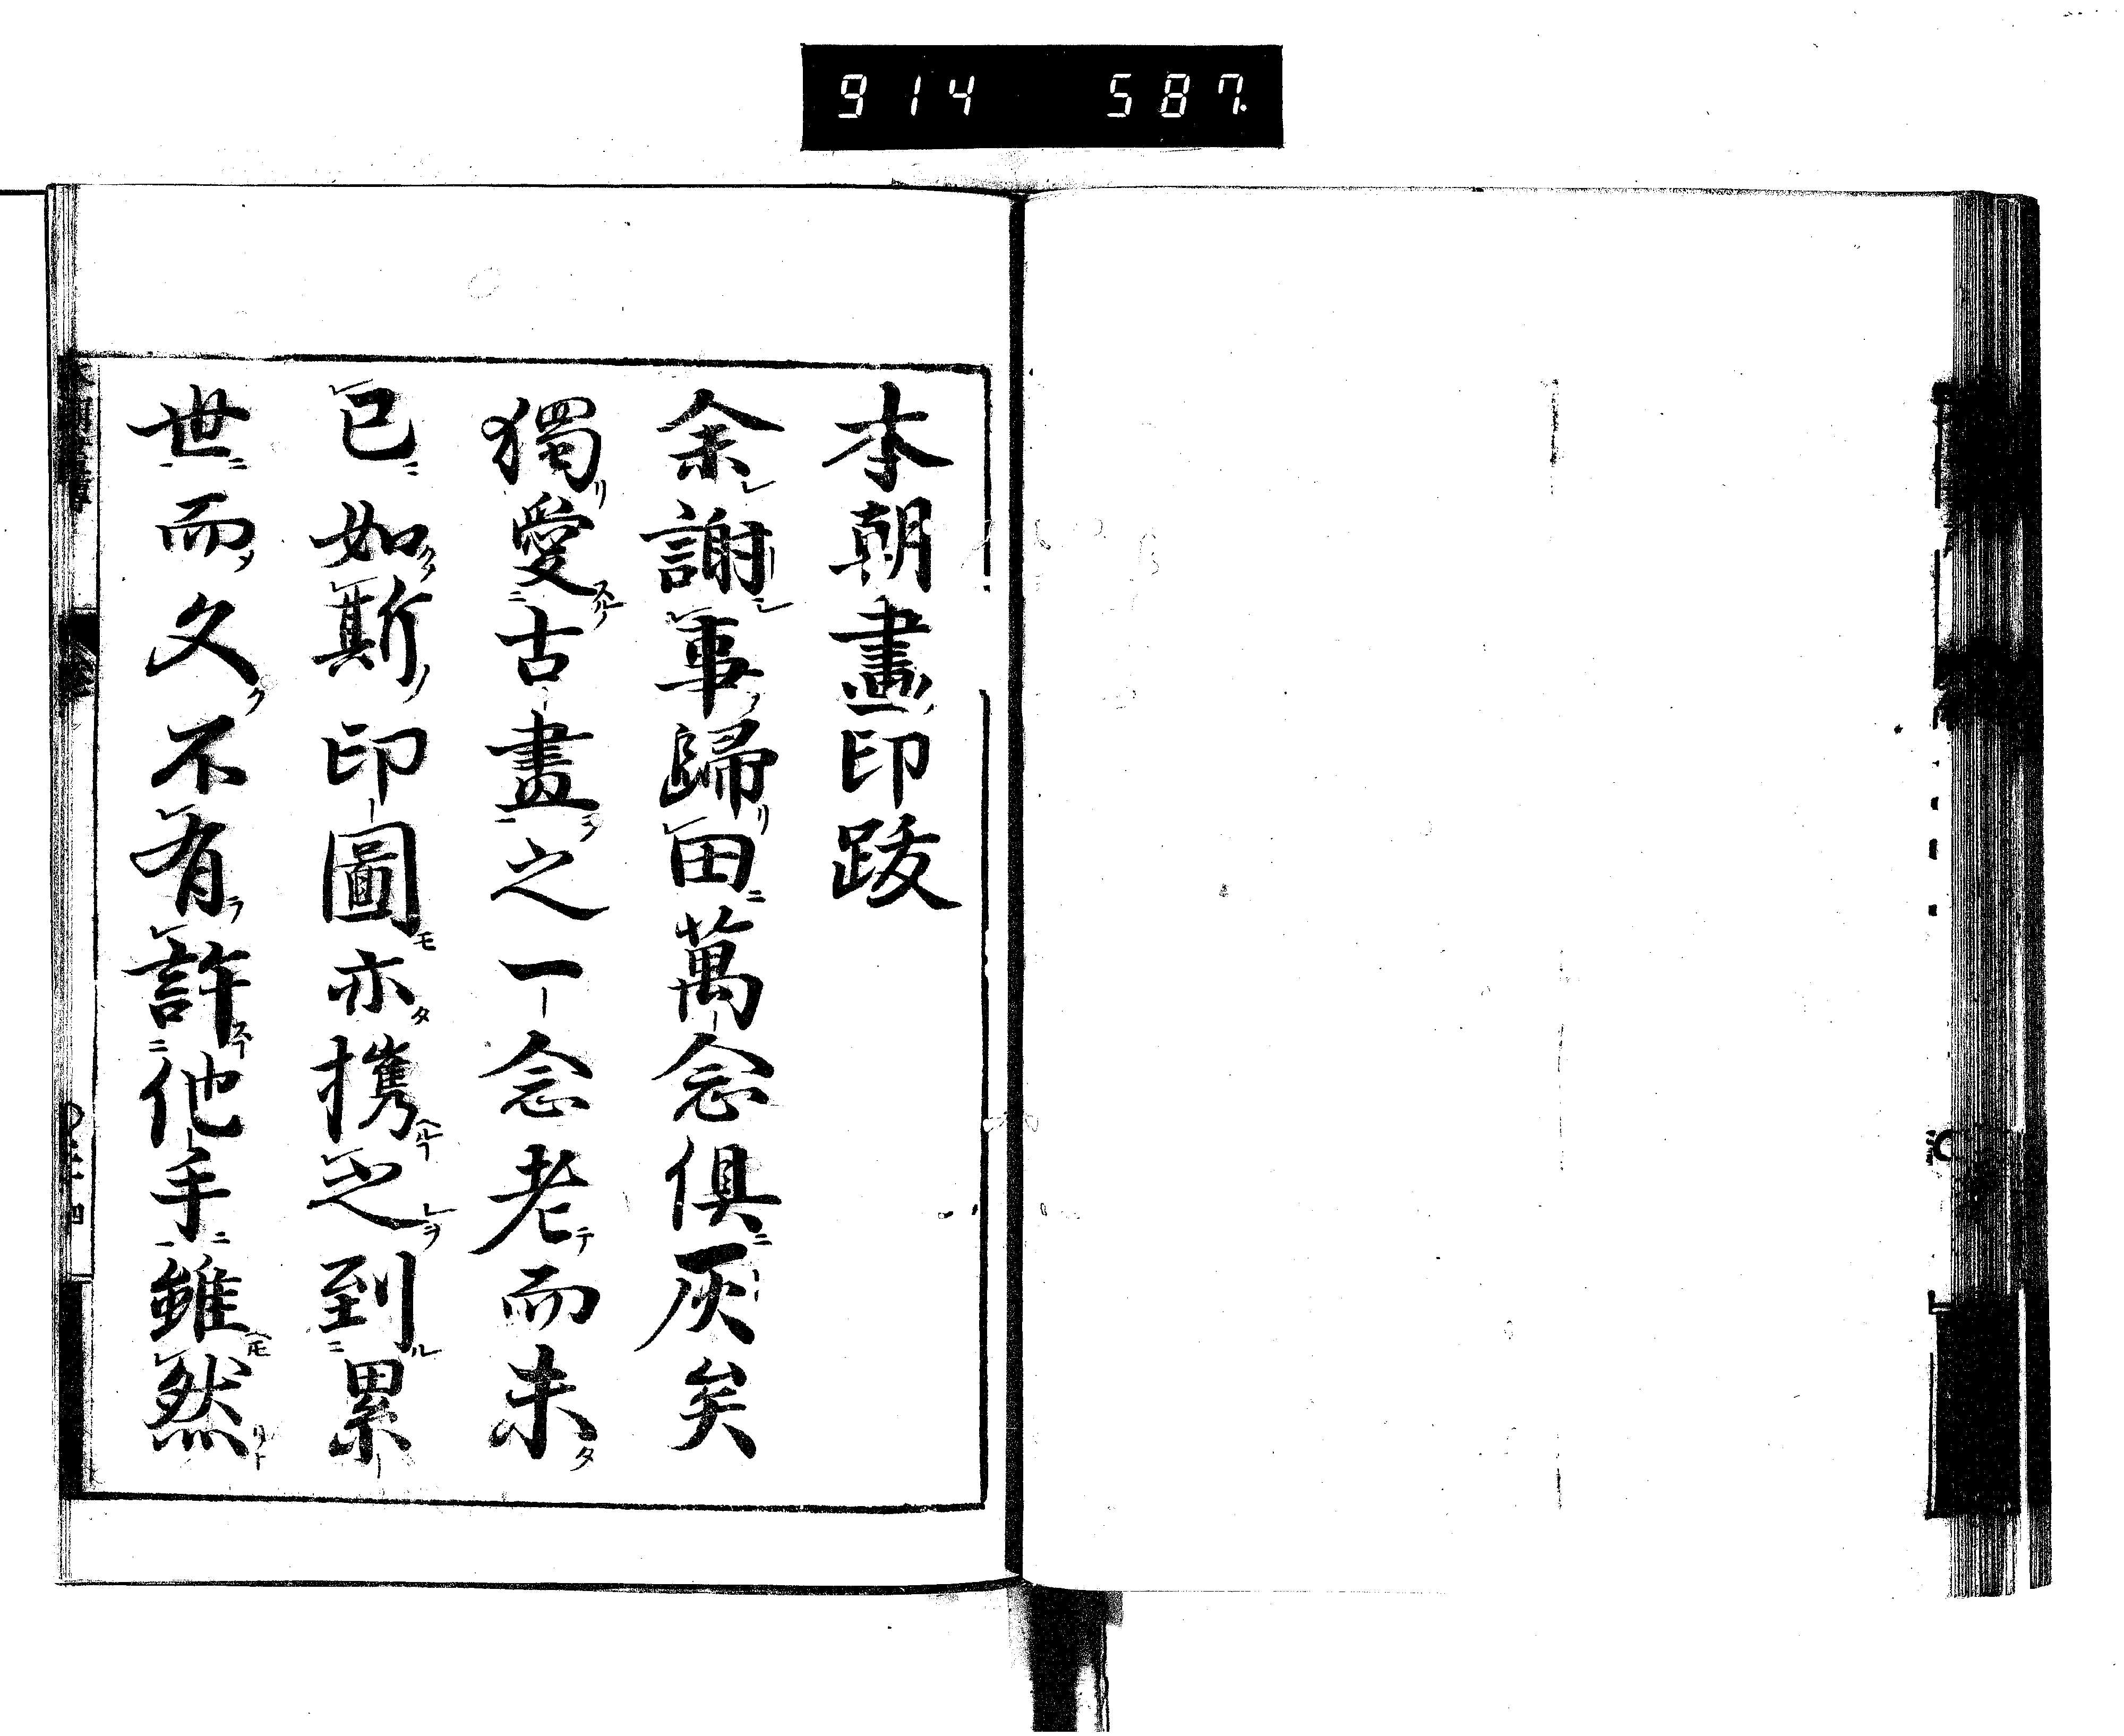 914 587
本朝畫印跋
余謝事歸田萬念俱灰矣
獨愛古畫之一念老而未
已如斯印圖亦携之到累
世而久不有許他手雖然